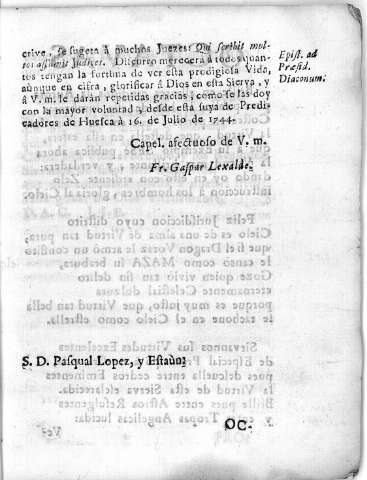 crive, se sugeta à muchos Juezes: Qui scribit mul-
tos assumit Judices. Discurro merecerà à todos quan-
tos tengan la fortuna de ver esta prodigiosa Vida,
aunque en cifra, glorificar à Dios en esta Sierva, y
à V. m. le daràn repetidas gracias, como se las doy
con la mayor voluntad, desde esta suya de Predi-
cadores de Huesca à 16. de Julio de 1744.
Epist. ad
Præsid.
Diaconum.
Capel. afectuoso de V. m.
Fr. Gaspar Lexalde.
S. D. Pasqual Lopez, y Estaùn.
OC-